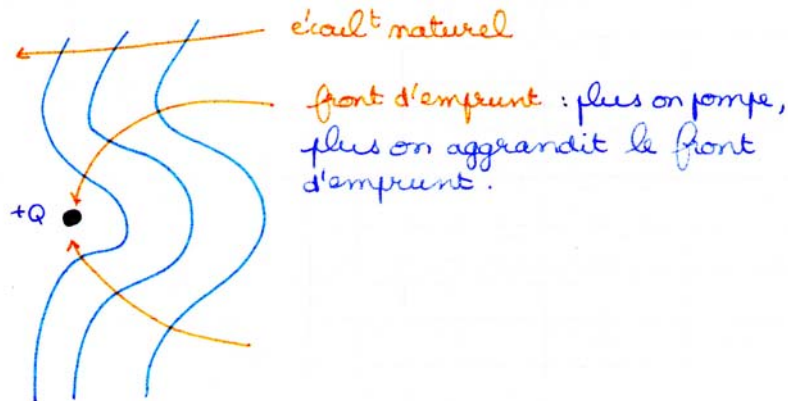 écoul^t naturel
front d'emprunt : plus on pompe,
plus on aggrandit le front
d'emprunt.
+Q